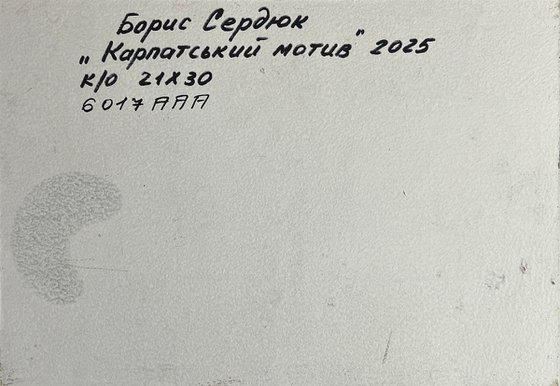 Борис Сердюк
„Карпатський мотив" 2025
к/о 21х30
6017ААА